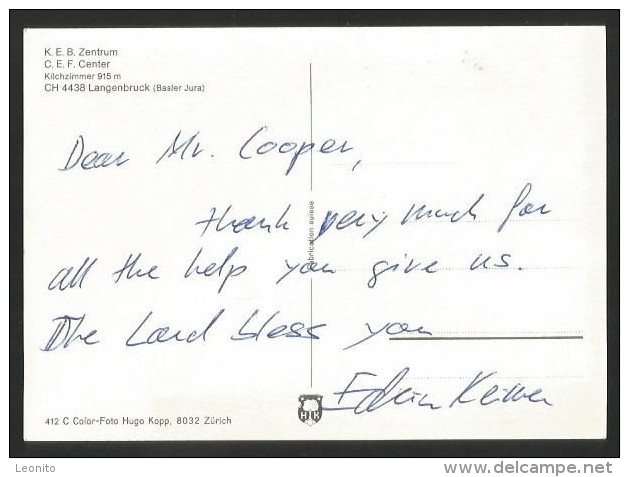 K. E. B. Zentrum
C. E. F. Center
Kilchzimmer 915 m
CH 4438 Langenbruck (Basler Jura)
Dear Mr. Cooper,
thank very much for
all the help you give us.
The Lord bless you
Edwin Keller
fabrication suisse
HK
412 C Color-Foto Hugo Kopp, 8032 Zürich
Leonito
www.delcampe.net